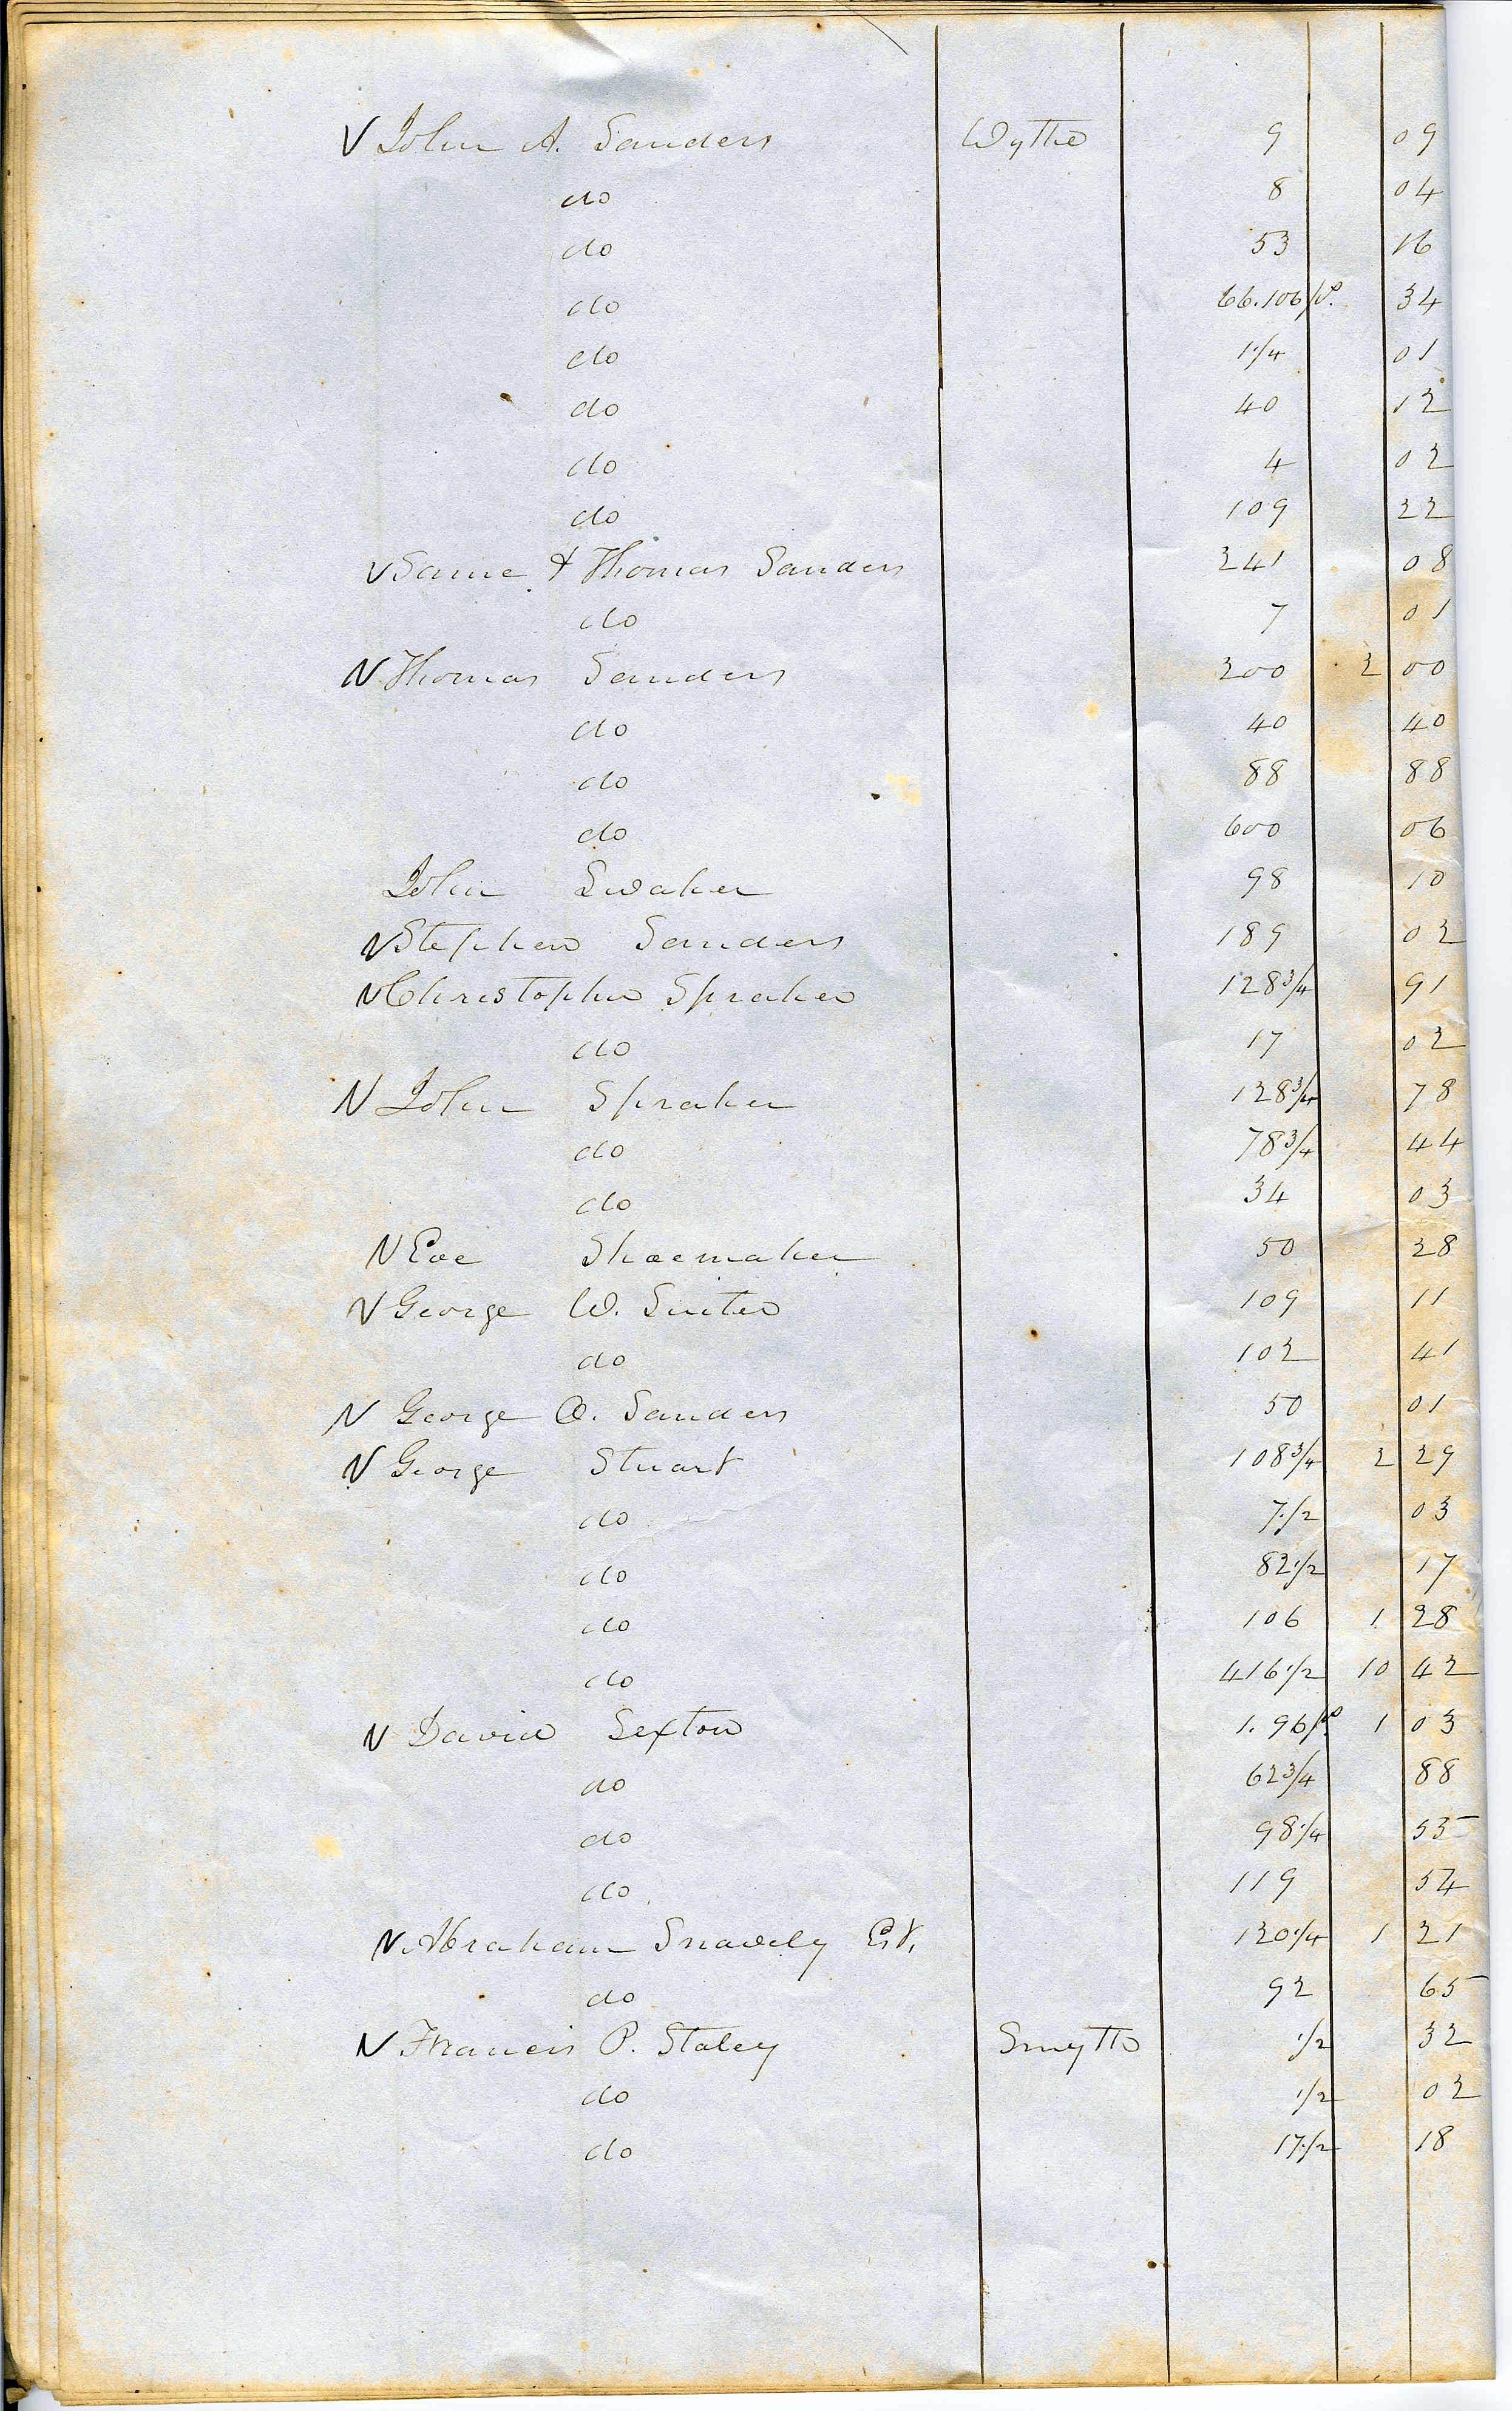 V John A. Sanders Wythe 9 09
do 8 04
do 53 16
do 66.106/p. 34
do 1 1/4 01
do 40 12
do 4 02
do 109 22
V Same & Thomas Sanders 241 08
do 7 01
V Thomas Sanders 200 2 00
do 40 40
do 88 88
do 600 06
John Swaker 98 10
V Stephen Sanders 189 02
V Christopher Spraker 128 3/4 91
do 17 02
V John Spraker 128 3/4 78
do 78 3/4 44
do 34 03
V Eve Shoemaker 50 28
V George W. Suiter 109 11
do 102 41
V George Sanders 50 01
V George Stuart 108 3/4 2 29
do 7 1/2 03
do 82 1/2 17
do 106 1 28
do 416 1/2 10 42
V David Sexton 1.96/p. 1 03
do 62 3/4 88
do 98 1/4 55
do 119 54
V Abraham Snavely Est. 120 1/4 1 21
do 92 65
V Francis P. Staley Smyth 1/2 32
do 1/2 02
do 17 1/2 18